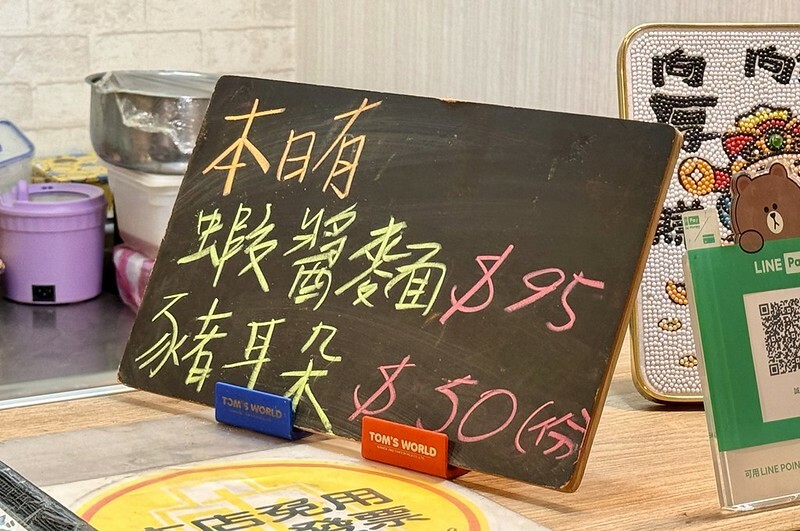 本日有
蝦醬麵 $95
豬耳朵 $50(份)
TOM'S WORLD
TOM'S WORLD
LINE Pay
可用LINE POIN
店免用